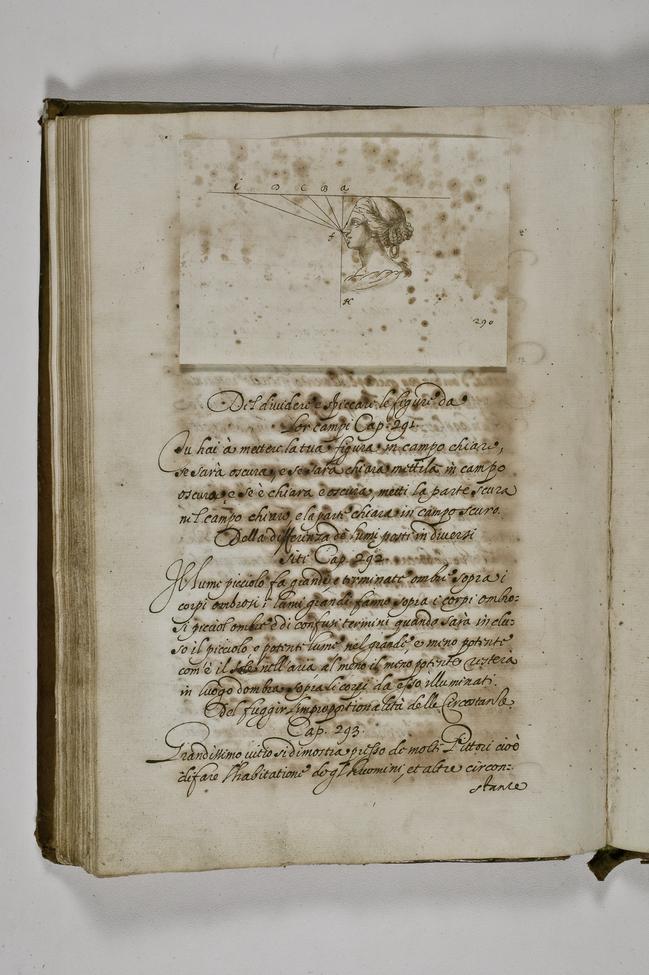 E D C B a
f
H
290
Del dividere e spiccare le figure da
lor campi Cap. 291.
Tu hai à mettere la tua figura in campo chiaro,
se sarà oscura, e se sarà chiara mettila in campo
oscuro, e se è chiara è oscura, metti la parte scura
nel campo chiaro, e la parte chiara in campo scuro.
Della differenza de lumi posti in diversi
siti Cap. 292
Il lume piccolo fa grandi, e terminate ombre sopra i
corpi ombrosi i lumi grandi fanno sopra i corpi ombro:
si piccol ombre è di confusi termini quando sarà inclu:
so il piccolo e potente lume nel grande e meno potente
com'è il sole nell'aria al meno il meno potente resterà
in luogo d'ombra sopra li corpi da esso illuminati.
Del fuggir l'improportionalità delle Circostanze.
Cap. 293.
Grandissimo vitio si dimostra presso de molti Pittori cioè
di fare l'habitatione de gl'huomini, et altre circon:
stanze